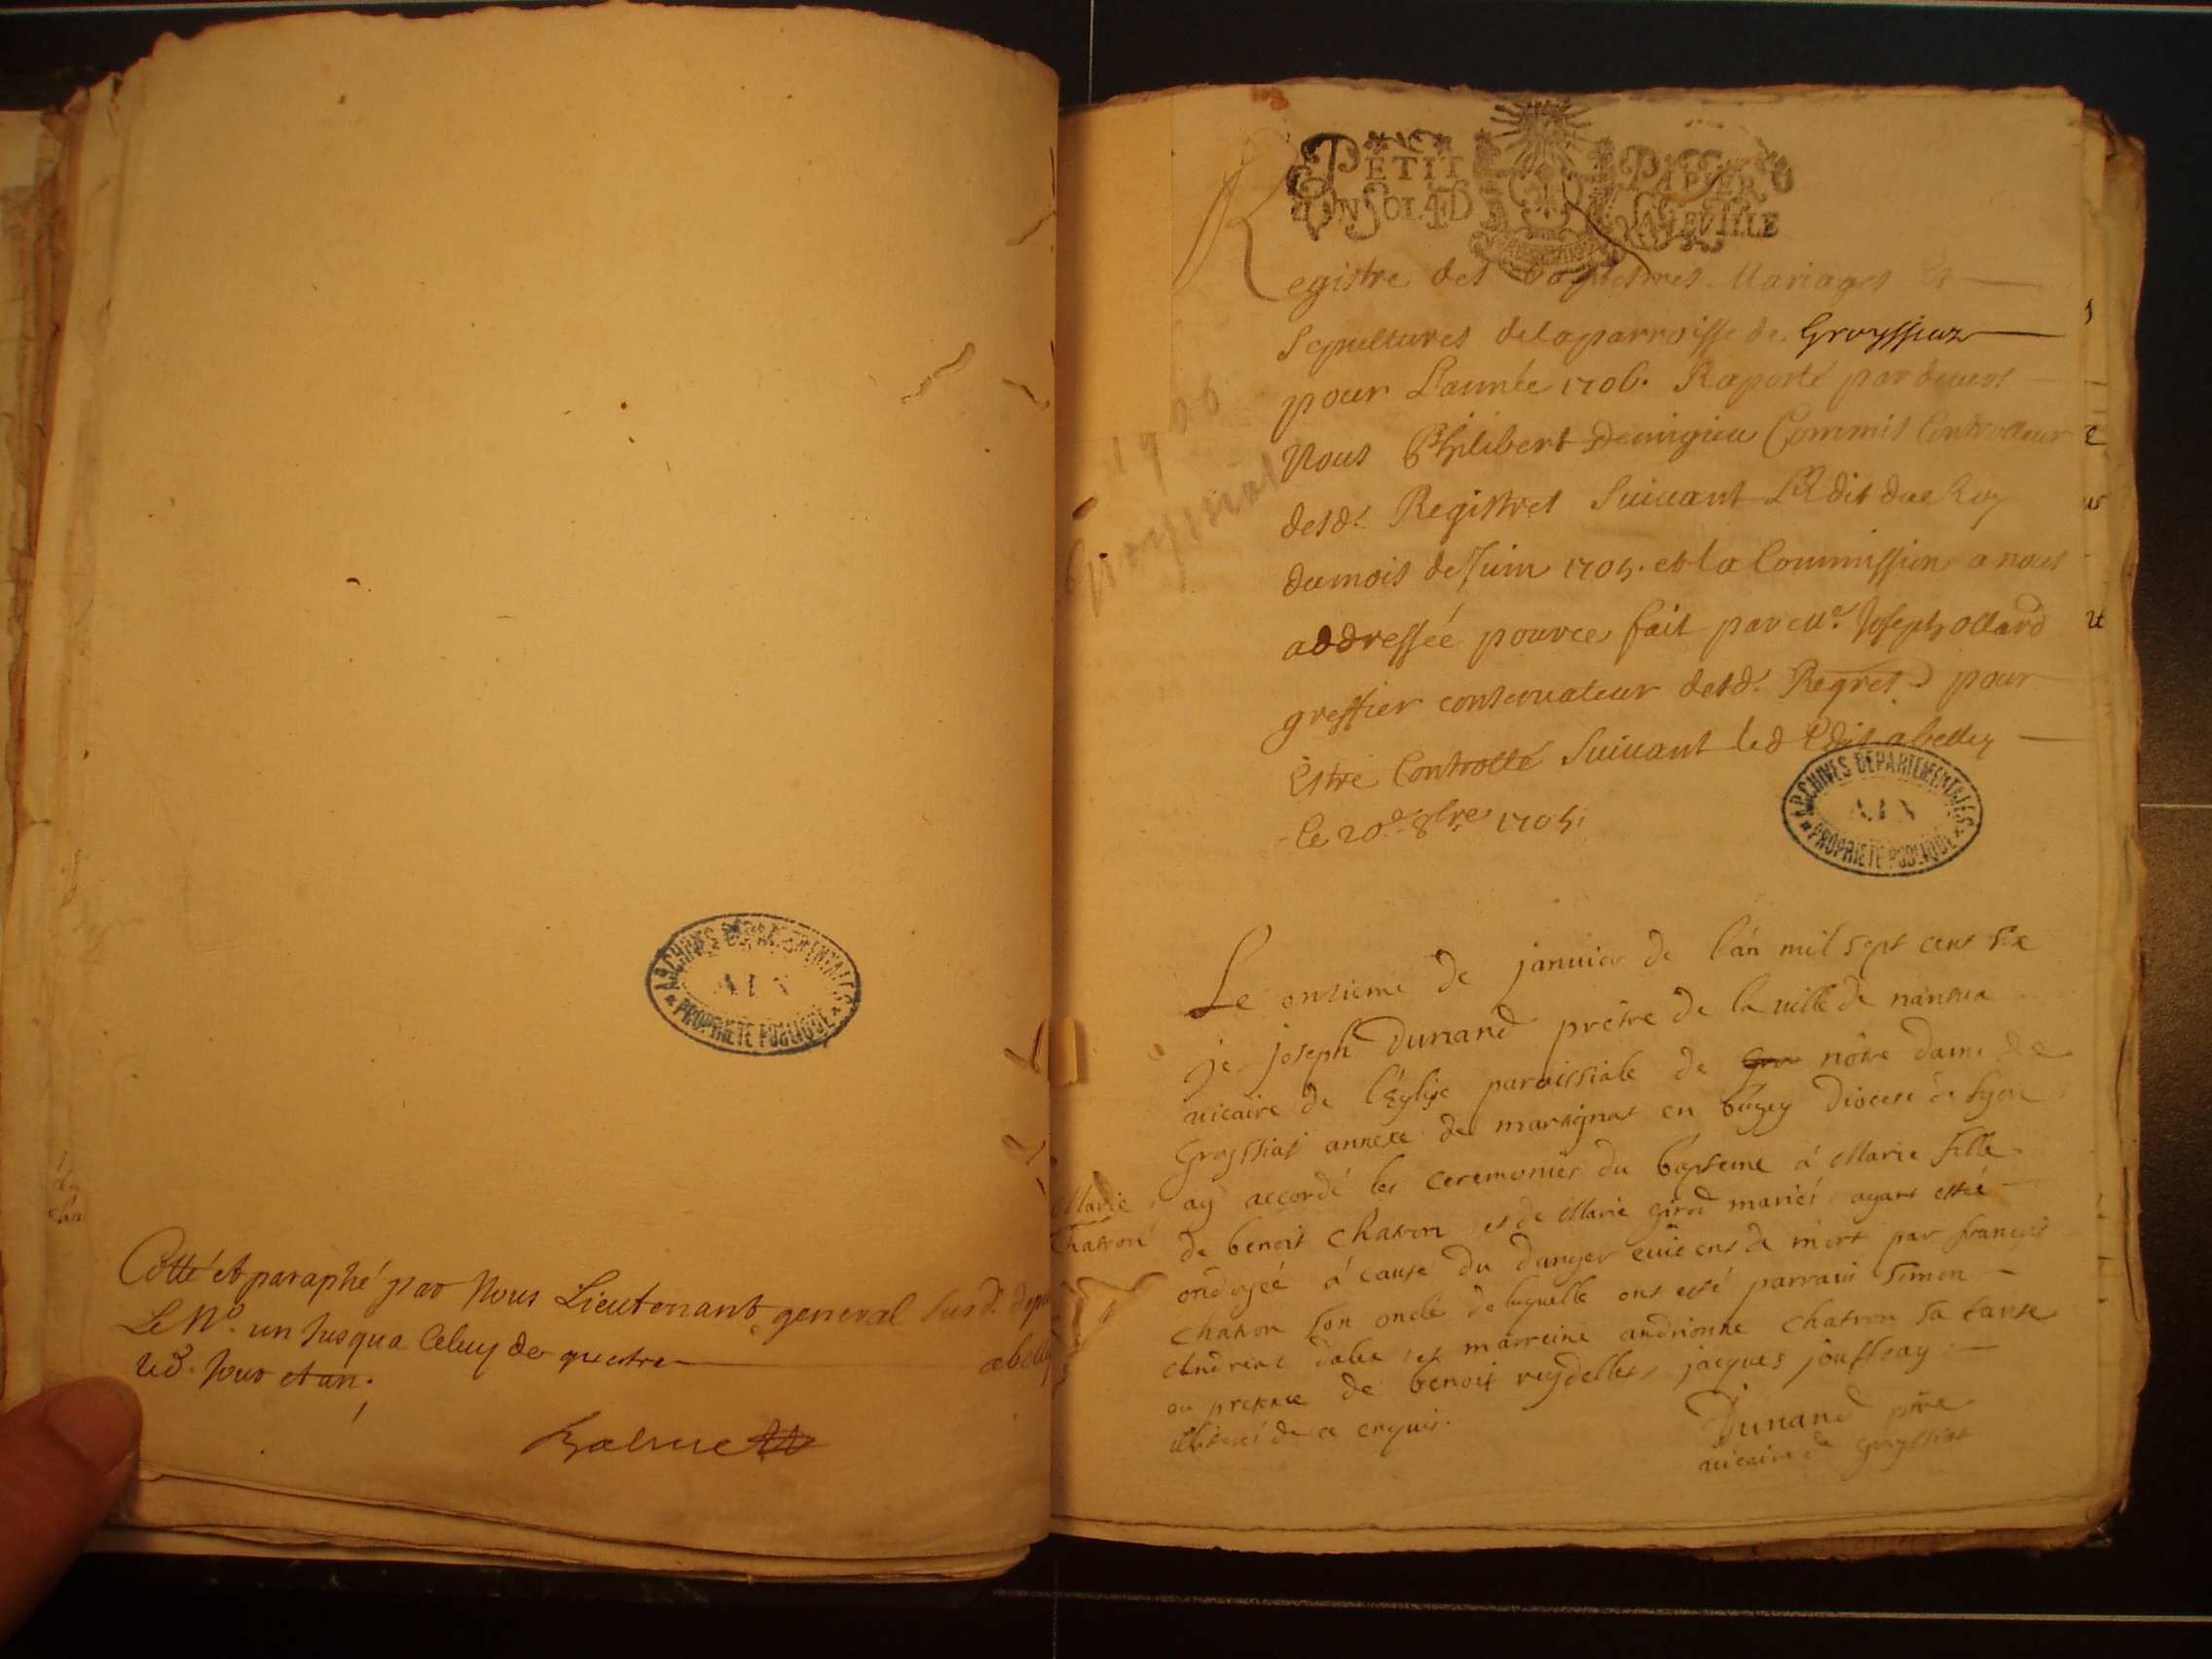 Cotté et paraphé par Nous Lieutenant general susd. depuis
Le N.º un Jusqua Celuy de quatre abelley
led. Jour et an.
Balme
ARCHIVES DEPARTEMENTALES
AIN
PROPRIETE PUBLIQUE
PETIT PAPIER
UN SOL 4 D LA FEUILLE
Registre des baptesmes Mariages Et
Sepultures de la parroisse de Groyssieux
pour L'année 1706. Raporté par devers
Nous Philibert Demigieu Commis Controlleur
desd. Registres Suivant L'Edit du Roy
du mois de Juin 1705. et la Commission a nous
addressée pource fait par Me. Joseph ollard
greffier conservateur desd. Regres pour
Estre Controllé Suivant led Edit abelley
le 20e 8bre 1705.
ARCHIVES DEPARTEMENTALES
AIN
PROPRIETE PUBLIQUE
Le onsieme de janvier de l'an mil sept cent six
je joseph Dunand prêtre de la ville de nantua
vicaire de l'Eglise paroissiale de gro nôtre dame de
Groyssiat annexe de martignat en bugey diocese de Lyon
Marie ay accordé les ceremonies du bapteme à Marie fille
Chatron de benoit Chatron et de Marie girod mariés ayant esté
ondoyée à cause du danger evident de mort par francois
Chatron son oncle de laquelle ont esté parrain simon
Andreas et marreine andrionne Chatron sa tante
en presence de benoit reydellet, jacques jouffray
de ce enquis.
Dunand ptre
vicaire de groyssiat